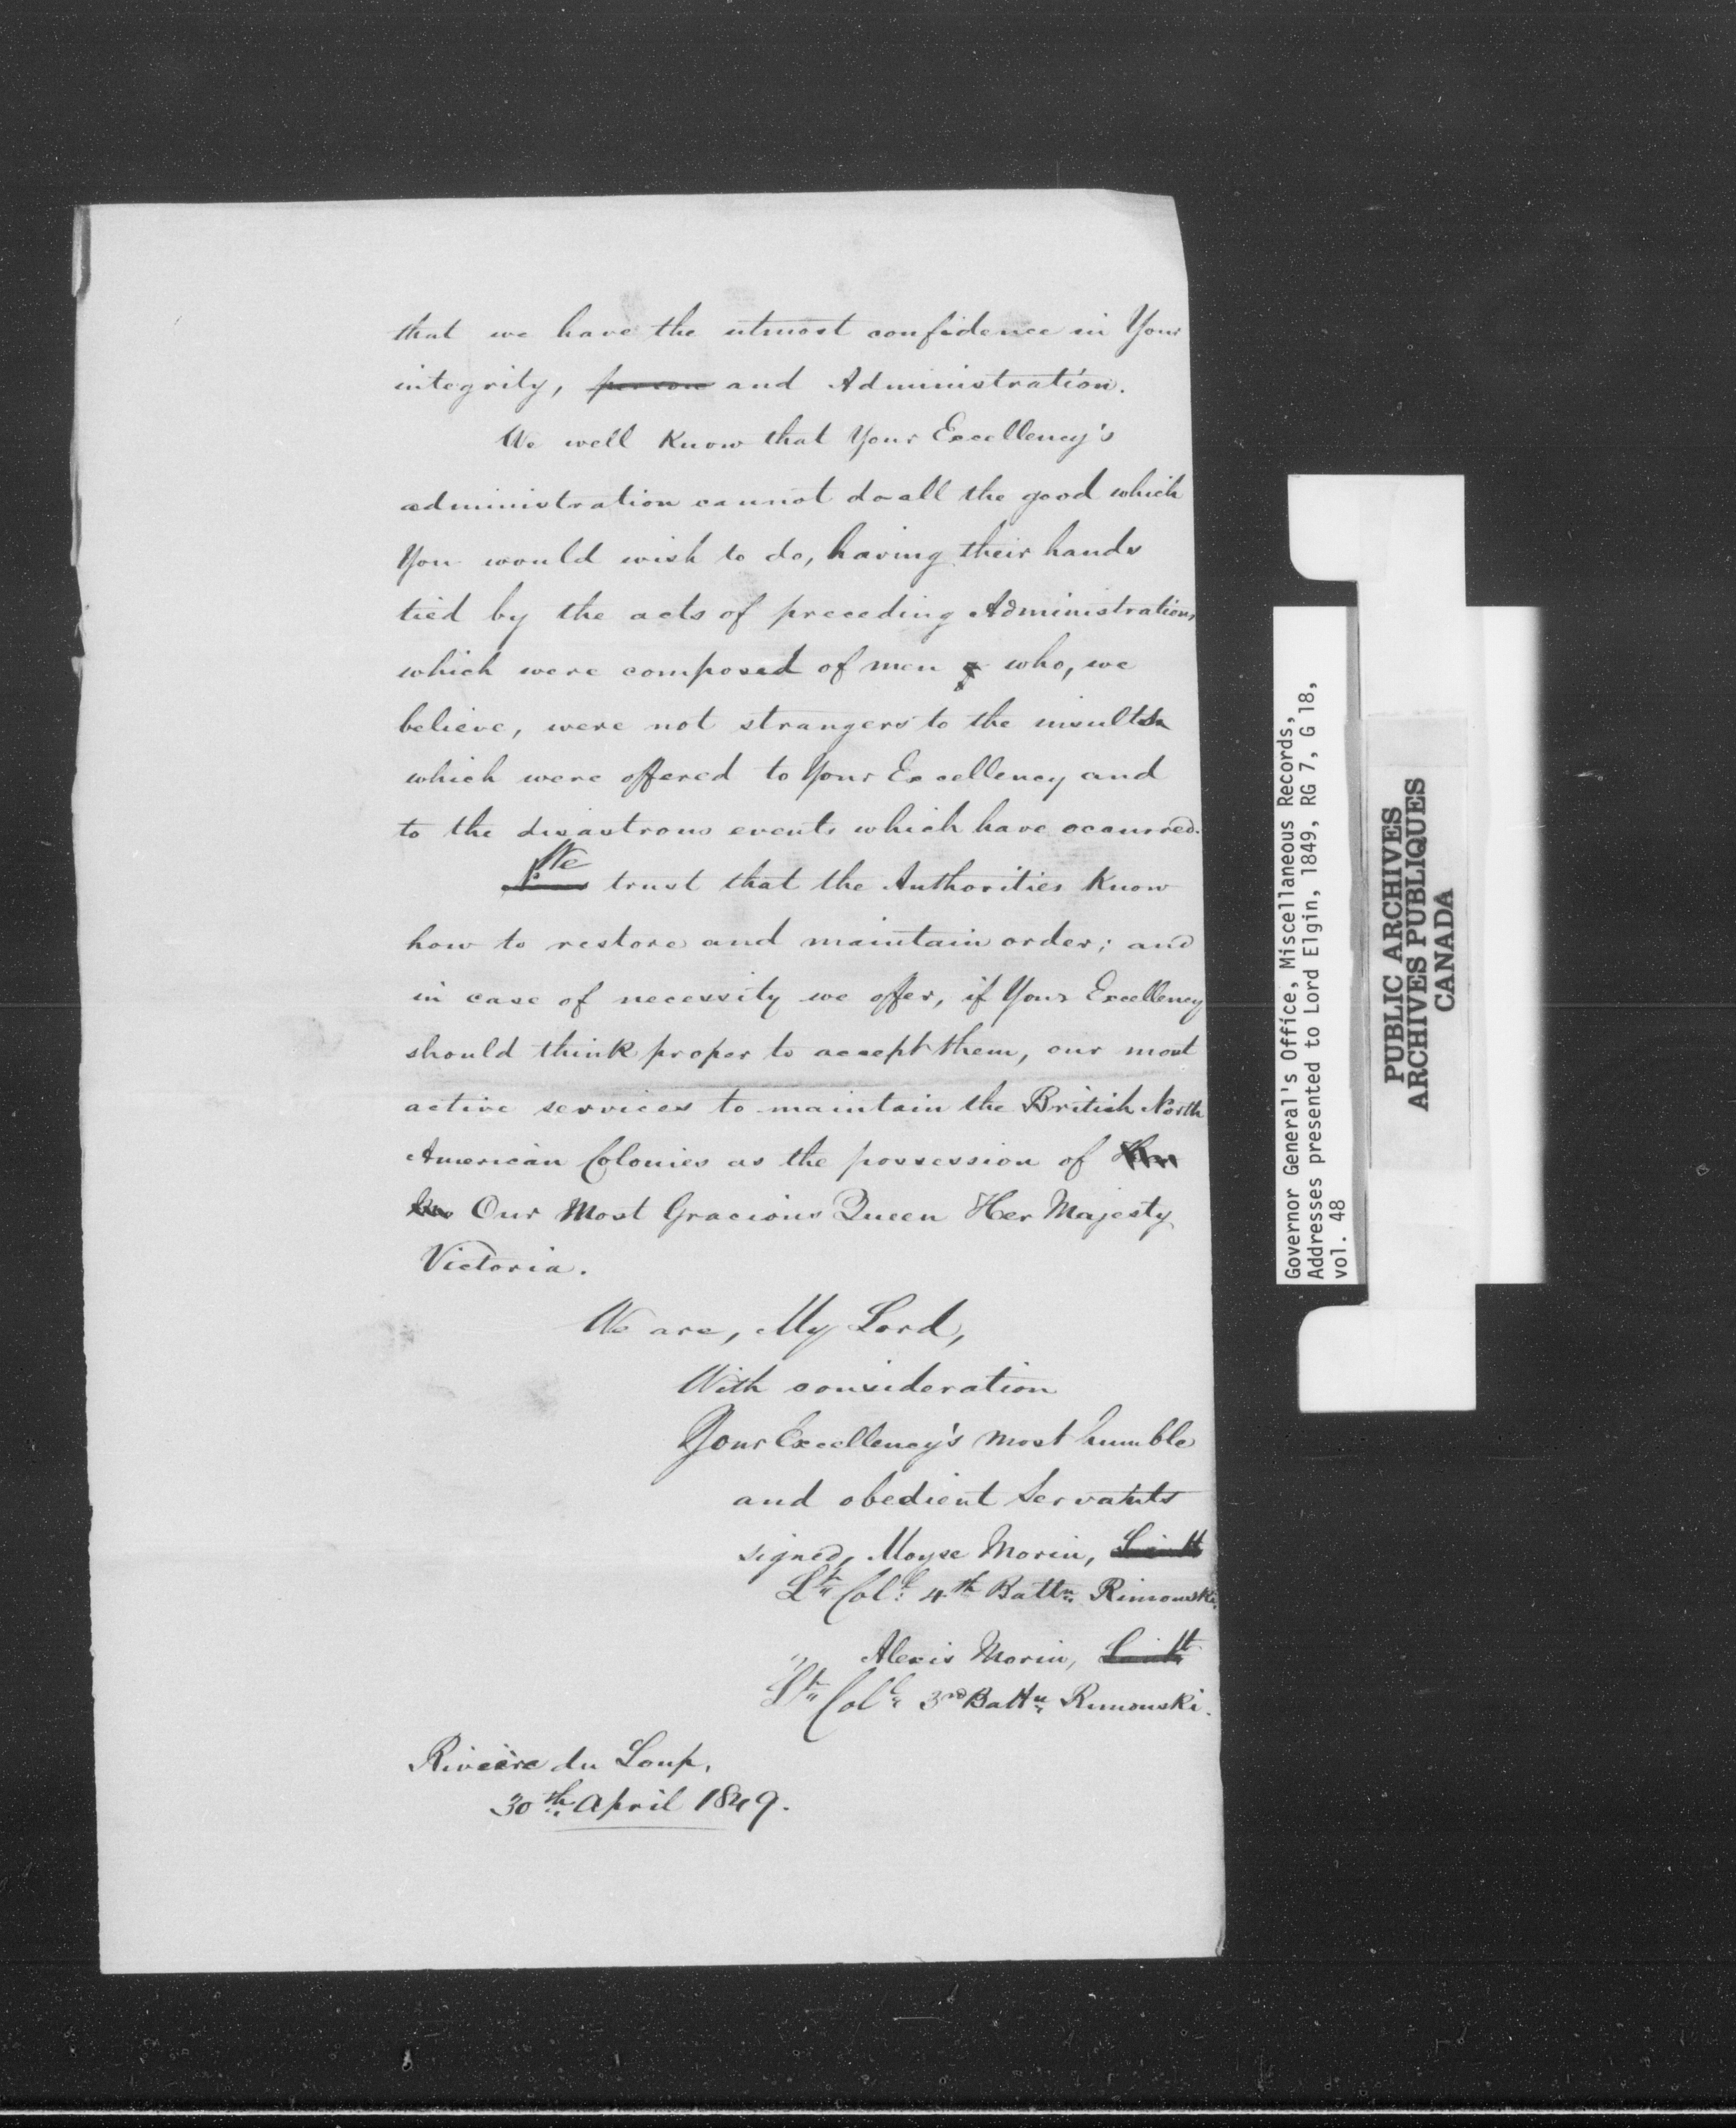 that we have the utmost confidence in Your
integrity, person and Administration.
We well Know that Your Excellency's
administration cannot do all the good which
You would wish to do, having their hands
tied by the acts of preceding Administrations
which were composed of men who, we
believe, were not strangers to the insults
which were offered to Your Excellency and
to the disastrous events which have occurred.
We
trust that the Authorities Know
how to restore and maintain order; and
in case of necessity we offer, if Your Excellency
should think proper to accept them, our most
active services to maintain the British North
American Colonies as the possession of
Our Most Gracious Queen Her Majesty
Victoria.
We are, My Lord,
With consideration
Your Excellency's most humble
and obedient Servants
signed, Moyse Morin, Lieutt
Lt. Coll. 4th Battn. Rimouski.
" Alexis Morin, Lieutt
Lt. Coll. 3rd Battn. Rimouski.
Rivière du Loup,
30th April 1849.
Governor General's Office, Miscellaneous Records,
Addresses presented to Lord Elgin, 1849, RG 7, G 18,
vol. 48
PUBLIC ARCHIVES
ARCHIVES PUBLIQUES
CANADA